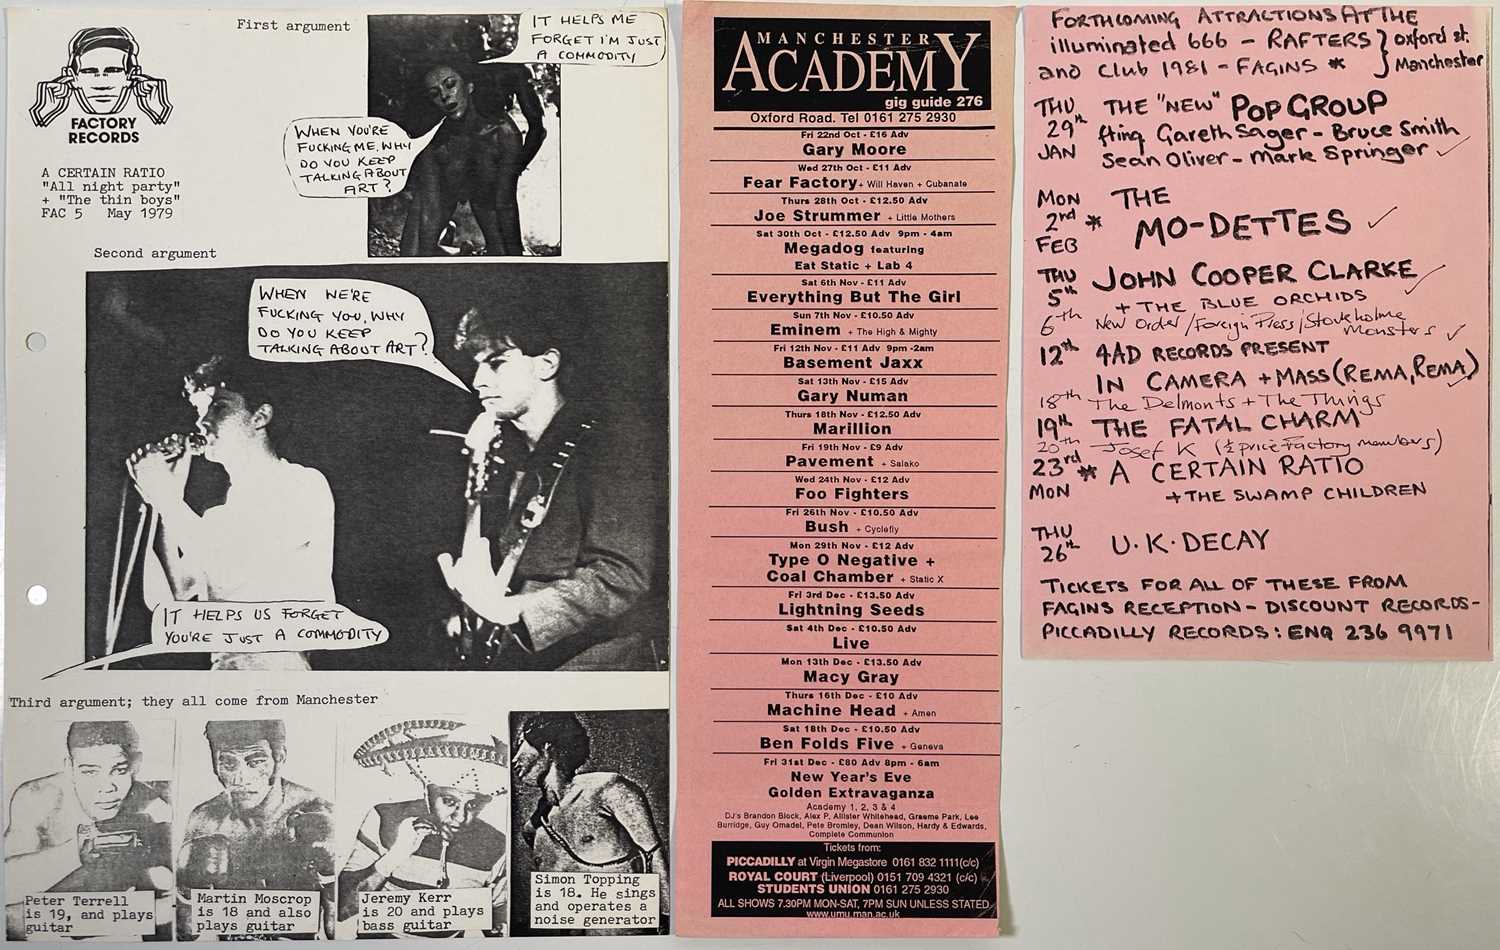 First argument
IT HELPS ME
FORGET I'M JUST
A COMMODITY
FACTORY
RECORDS
WHEN YOU'RE
FUCKING ME, WHY
DO YOU KEEP
TALKING ABOUT
ART?
A CERTAIN RATIO
"All night party"
+ "The thin boys"
FAC 5 May 1979
Second argument
WHEN WE'RE
FUCKING YOU, WHY
DO YOU KEEP
TALKING ABOUT ART?
IT HELPS US FORGET
YOU'RE JUST A COMMODITY
Third argument; they all come from Manchester
Peter Terrell
is 19, and plays
guitar
Martin Moscrop
is 18 and also
plays guitar
Jeremy Kerr
is 20 and plays
bass guitar
Simon Topping
is 18. He sings
and operates a
noise generator
MANCHESTER
ACADEMY
gig guide 276
Oxford Road. Tel 0161 275 2930
Fri 22nd Oct - £16 Adv
Gary Moore
Wed 27th Oct - £11 Adv
Fear Factory + Will Haven + Cubanate
Thurs 28th Oct - £12.50 Adv
Joe Strummer + Little Mothers
Sat 30th Oct - £12.50 Adv 9pm - 4am
Megadog featuring
Eat Static + Lab 4
Sat 6th Nov - £11 Adv
Everything But The Girl
Sun 7th Nov - £10.50 Adv
Eminem + The High & Mighty
Fri 12th Nov - £11 Adv 9pm -2am
Basement Jaxx
Sat 13th Nov - £15 Adv
Gary Numan
Thurs 18th Nov - £12.50 Adv
Marillion
Fri 19th Nov - £9 Adv
Pavement + Salako
Wed 24th Nov - £12 Adv
Foo Fighters
Fri 26th Nov - £10.50 Adv
Bush + Cyclefly
Mon 29th Nov - £12 Adv
Type O Negative +
Coal Chamber + Static X
Fri 3rd Dec - £13.50 Adv
Lightning Seeds
Sat 4th Dec - £10.50 Adv
Live
Mon 13th Dec - £13.50 Adv
Macy Gray
Thurs 16th Dec - £10 Adv
Machine Head + Amen
Sat 18th Dec - £10.50 Adv
Ben Folds Five + Geneva
Fri 31st Dec - £80 Adv 8pm - 6am
New Year's Eve
Golden Extravaganza
Academy 1, 2, 3 & 4
DJ's Brandon Block, Alex P, Allister Whitehead, Graeme Park, Lee
Burridge, Guy Omadel, Pete Bromley, Dean Wilson, Hardy & Edwards,
Complete Communion
Tickets from:
PICCADILLY at Virgin Megastore 0161 832 1111(c/c)
ROYAL COURT (Liverpool) 0151 709 4321 (c/c)
STUDENTS UNION 0161 275 2930
ALL SHOWS 7.30PM MON-SAT, 7PM SUN UNLESS STATED
www.umu.man.ac.uk
FORTHCOMING ATTRACTIONS AT THE
illuminated 666 - RAFTERS } oxford st.
and Club 1981 - FAGINS * } Manchester
THU 29th JAN THE "NEW" POP GROUP
fting Gareth Sager - Bruce Smith
Sean Oliver - Mark Springer ✓
MON 2nd FEB * THE
MO-DETTES ✓
THU 5th JOHN COOPER CLARKE ✓
+ THE BLUE ORCHIDS
6th New Order / Foreign Press / Stockholme
Monsters ✓
12th 4AD RECORDS PRESENT
IN CAMERA + MASS (REMA, REMA) ✓
18th The Delmonts + The Things
19th THE FATAL CHARM
20th Josef K (½ price Factory members)
23rd MON * A CERTAIN RATIO
+ THE SWAMP CHILDREN
THU 26th U.K. DECAY
TICKETS FOR ALL OF THESE FROM
FAGINS RECEPTION - DISCOUNT RECORDS -
PICCADILLY RECORDS: ENQ 236 9971